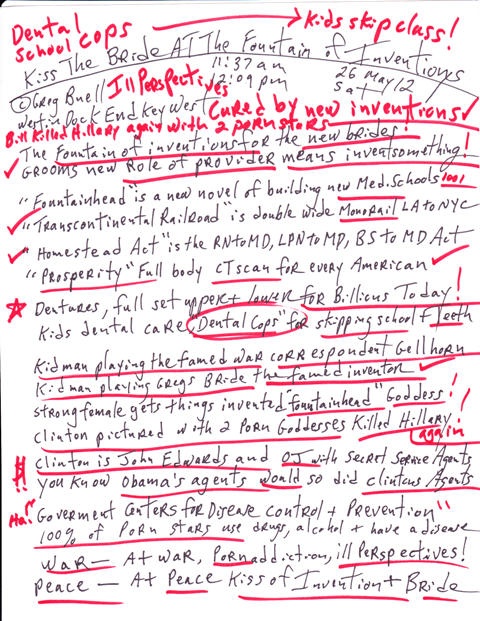 Dental School Cops → Kids skip class!
Kiss The Bride AT The Fountain of Inventions
11:37 am
12:09 pm
26 May 12
Sat
© Greg Buell Ill Perspectives
Westin Dock End Key West Cured by new inventions
Bill Killed Hillary again with 2 porn stars
The Fountain of inventions for the new brides!
Grooms new Role of provider means invent something!
"Fountainhead" is a new novel of building new Med. Schools 1001
"Transcontinental Railroad" is double wide MonoRail LA to NYC
"Homestead Act" is the RN to MD, LPN to MD, BS to MD Act
"Prosperity" Full body CT scan for every American
Dentures, full set upper + lower for Billions Today!
Kids dental care "Dental Cops" for skipping school + Teeth
Kidman playing the famed war correspondent Gellhorn
Kidman playing Gregs Bride the famed inventor
strong female gets things invented "fountainhead" Goddess!
Clinton pictured with 2 Porn Goddesses Killed Hillary again!
Clinton is John Edwards and OJ with Secret Service Agents
You Know Obama's agents would so did clintons Agents
Ha! "Goverment Centers for Disease control + Prevention"
100% of Porn stars use drugs, alcohol + have a disease
War — At war, Porn addiction, ill Perspectives!
Peace — At Peace Kiss of Invention + Bride